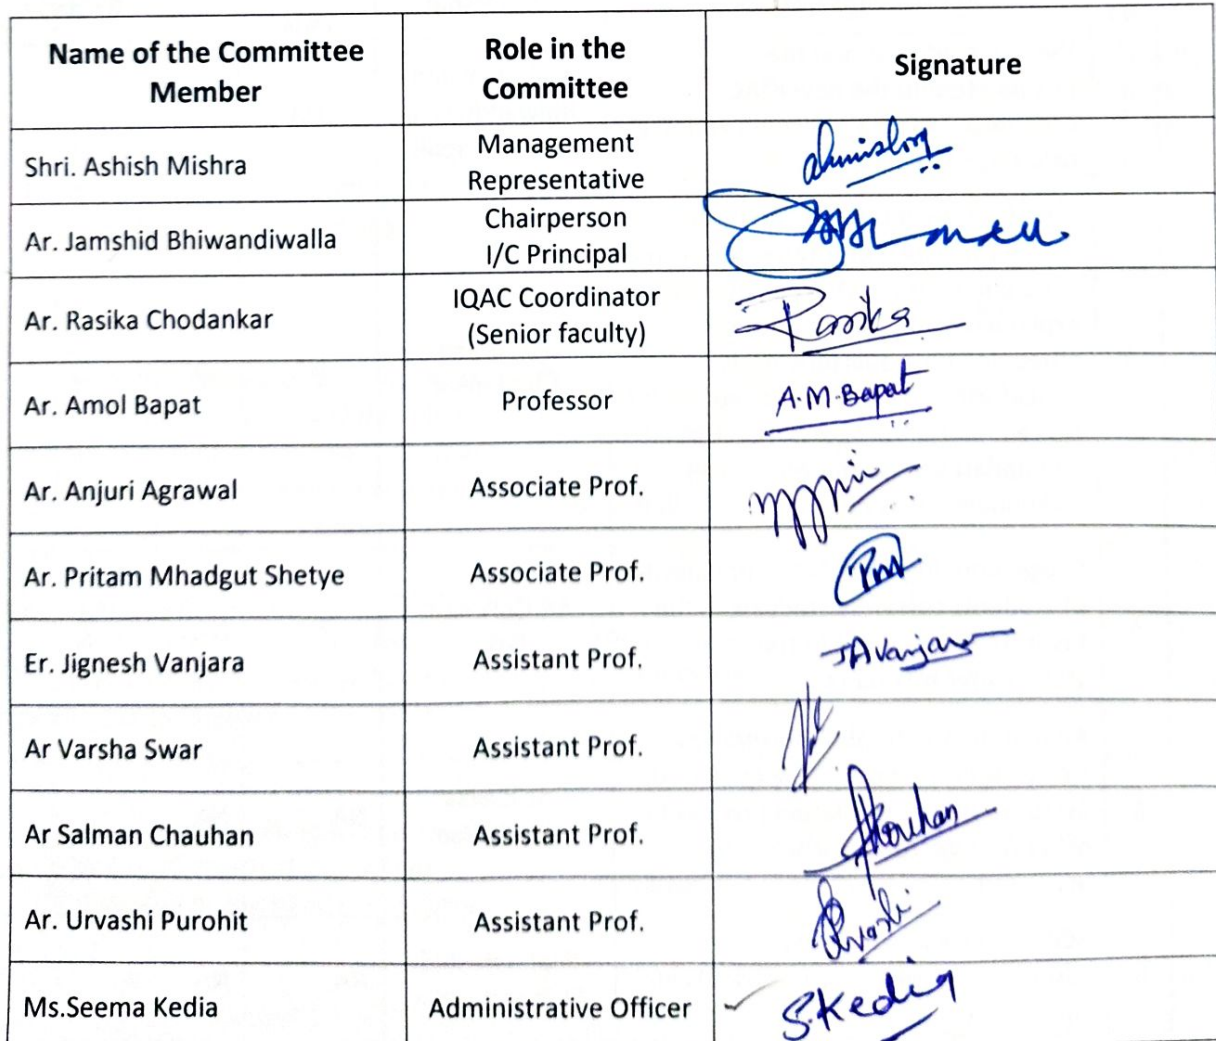 Name of the Committee
Member
Role in the
Committee
Signature
Shri. Ashish Mishra
Management
Representative
Ar. Jamshid Bhiwandiwalla
Chairperson
I/C Principal
Ar. Rasika Chodankar
IQAC Coordinator
(Senior faculty)
Rasika
Ar. Amol Bapat
Professor
A.M.Bapat
Ar. Anjuri Agrawal
Associate Prof.
Ar. Pritam Mhadgut Shetye
Associate Prof.
Er. Jignesh Vanjara
Assistant Prof.
JAVanjara
Ar Varsha Swar
Assistant Prof.
Ar Salman Chauhan
Assistant Prof.
Ar. Urvashi Purohit
Assistant Prof.
Ms.Seema Kedia
Administrative Officer
S.Kedia